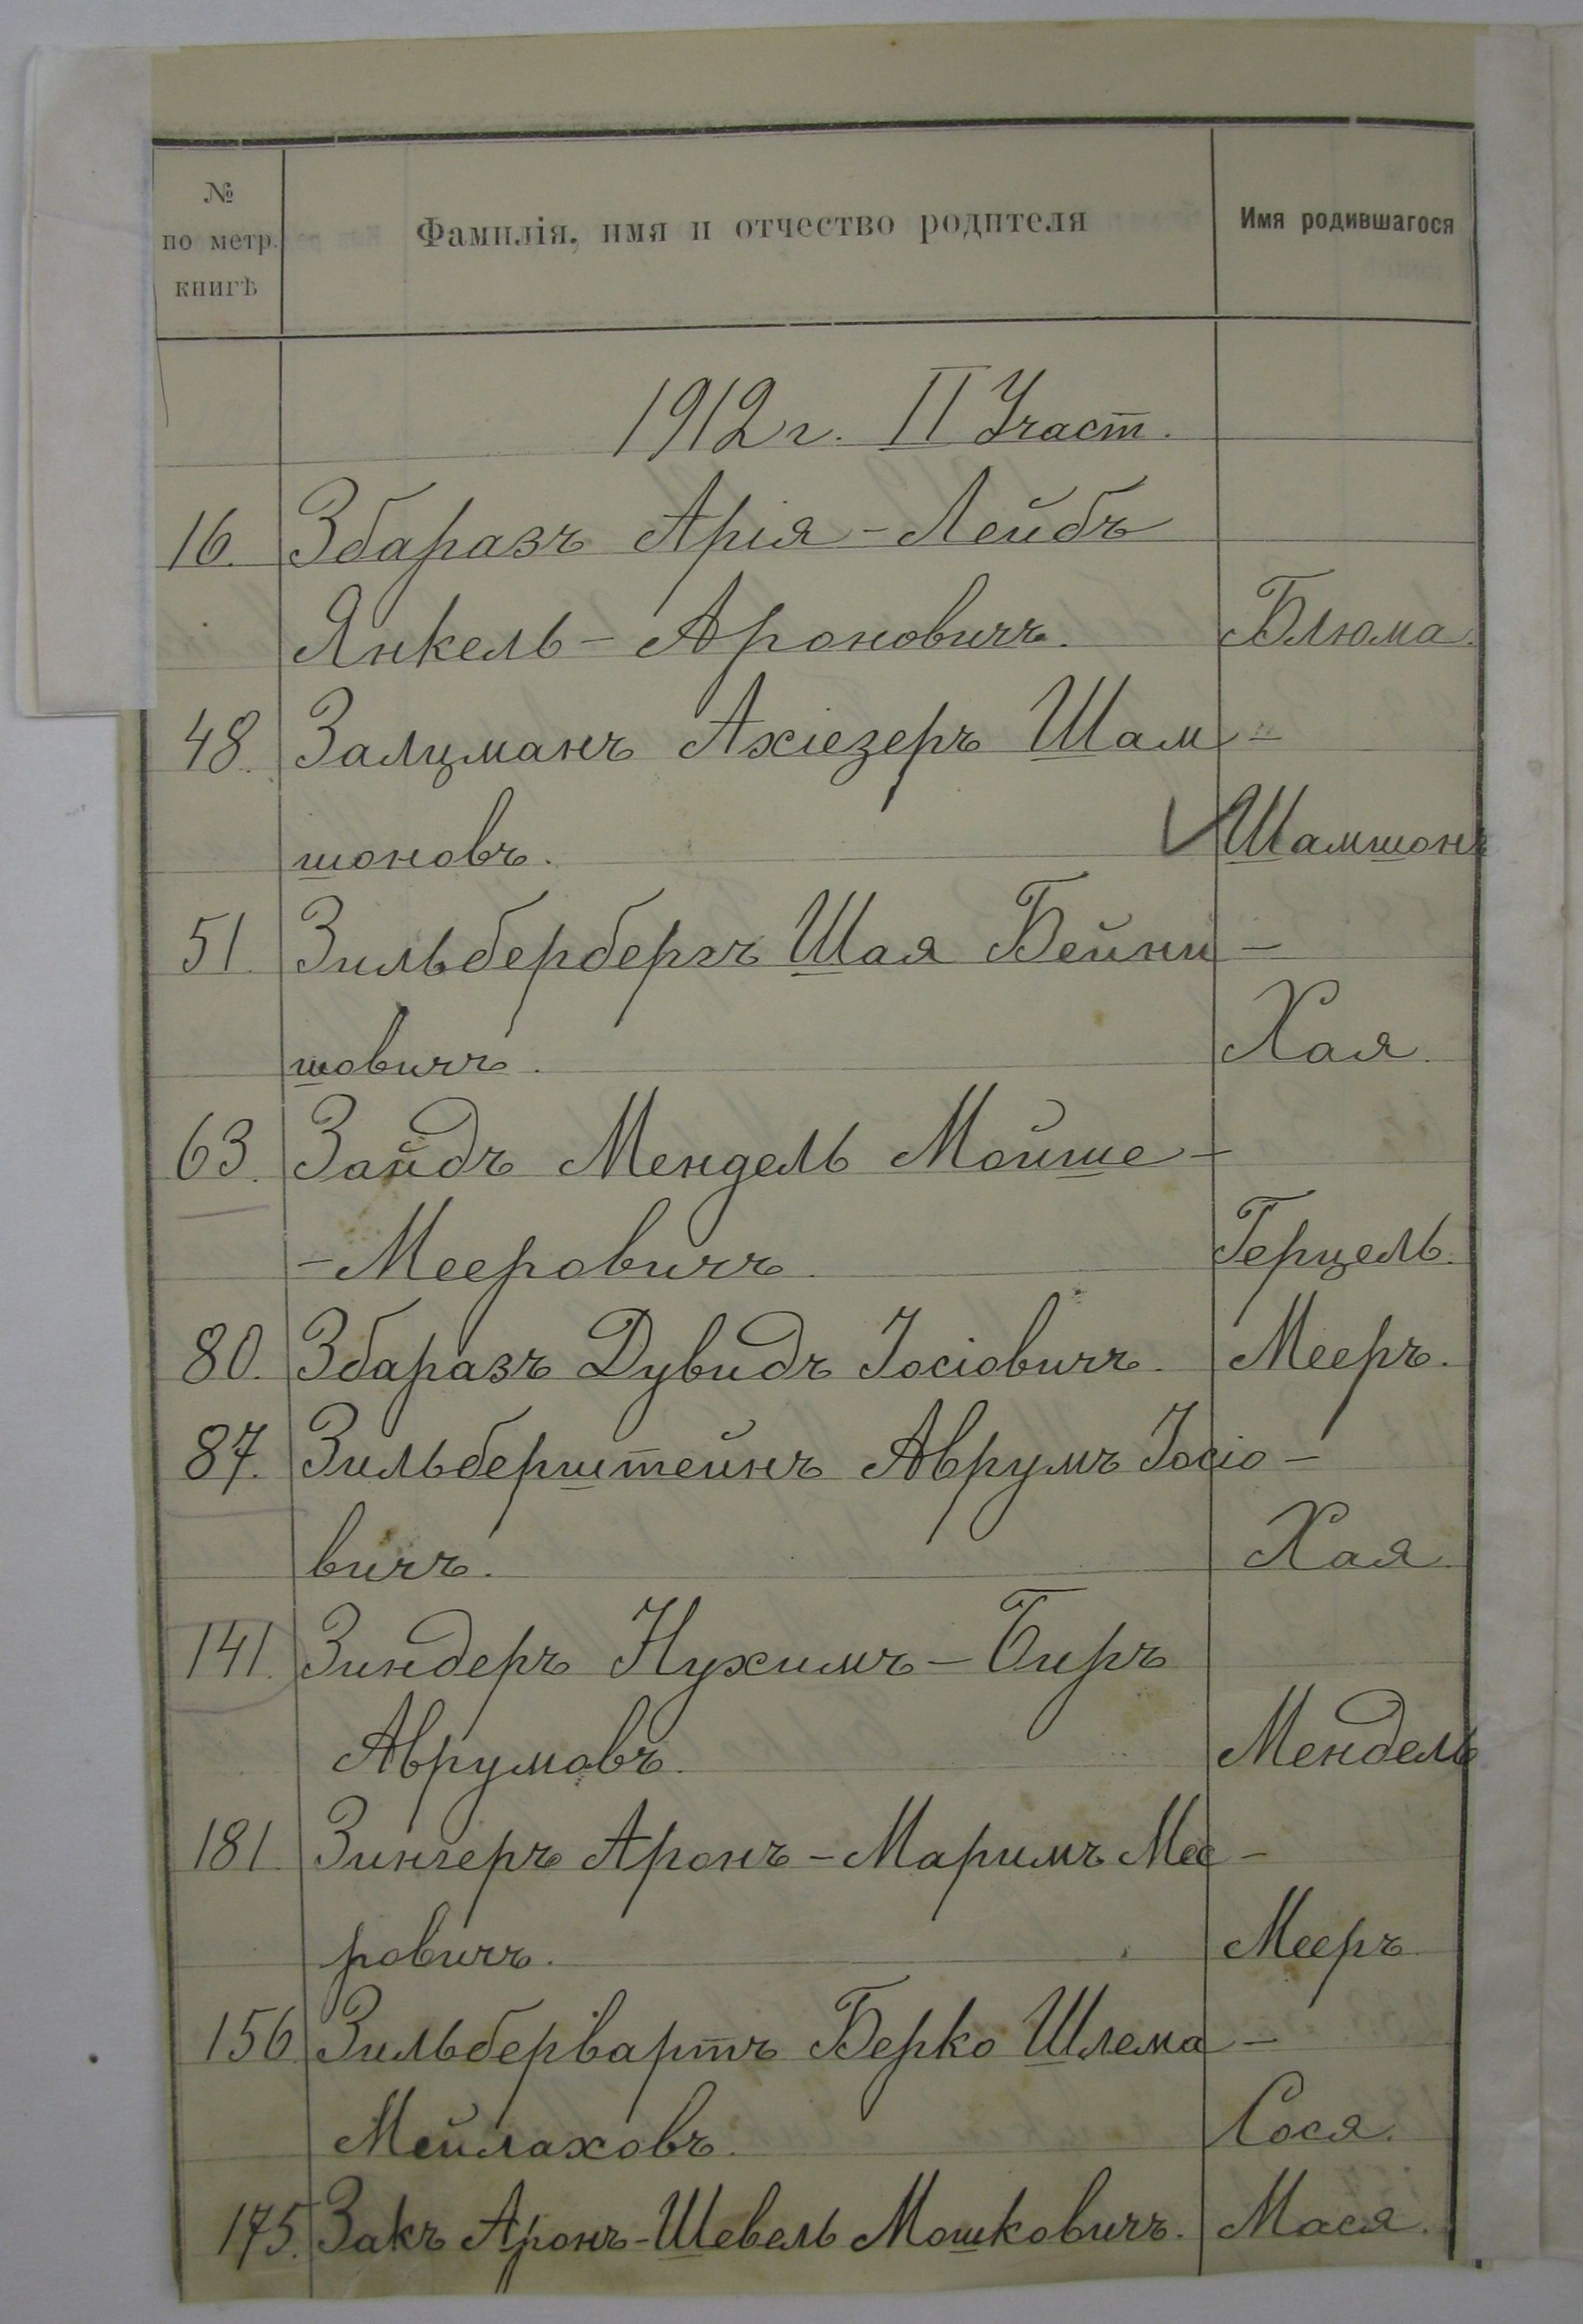 №
по метр.
книгѣ
Фамилія, имя и отчество родителя
Имя родившагося
1912 г. II Участ.
16. Збаразъ Арія-Лейбъ
Янкель-Ароновичъ. Блюма.
48. Залцманъ Ахіезеръ Шам-
шоновъ. Шамшонъ
51. Зильбербергъ Шая Бейни-
шовичъ. Хая.
63. Зайдъ Мендель Мойше-
-Мееровичъ. Герцель.
80. Збаразъ Дувидъ Іосіовичъ. Мееръ.
87. Зильберштейнъ Аврумъ Іосіо-
вичъ. Хая.
141. Зиндеръ Нухимъ-Биръ
Аврумовъ. Мендель
181. Зингеръ Аронъ-Маримъ Мее-
ровичъ. Мееръ
156. Зильбервартъ Берко Шлема-
Мейлаховъ. Сося.
175. Закъ Аронъ-Шевель Мошковичъ. Мася.